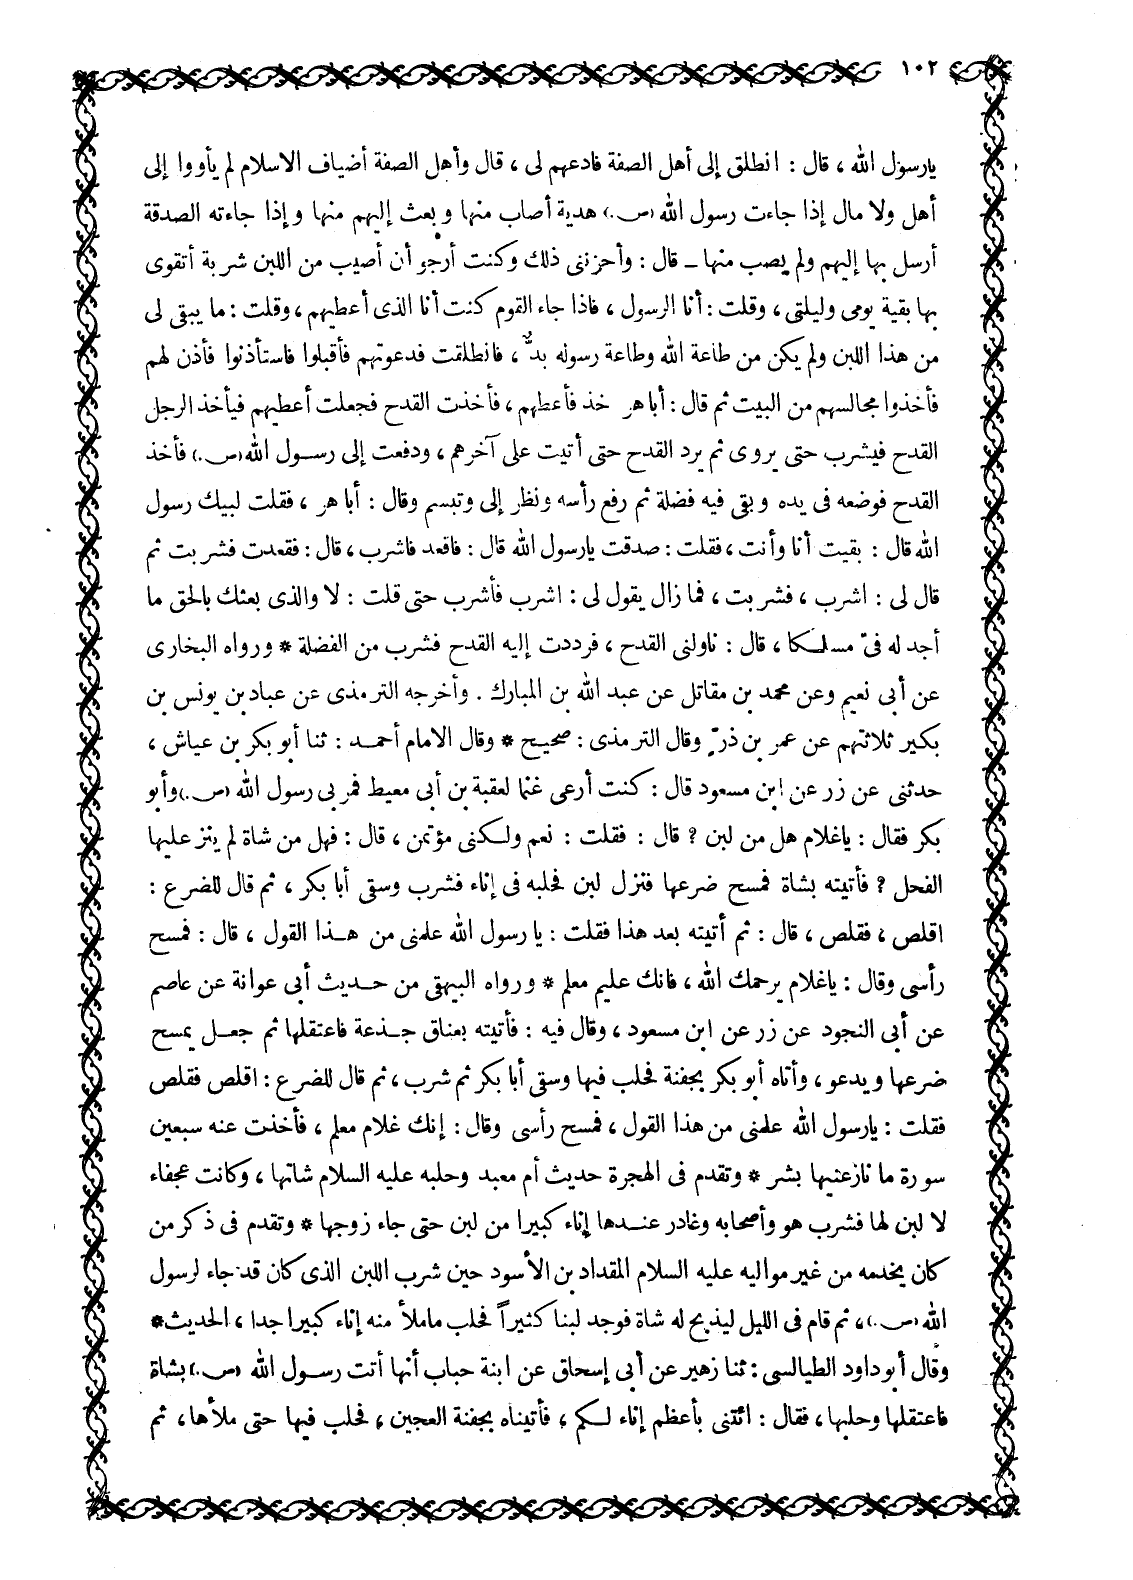 ١٠٢
يارسول الله ، قال : انطلق إلى أهل الصفة فادعهم لى ، قال وأهل الصفة أضياف الاسلام لم يأووا إلى
أهل ولا مال إذا جاءت رسول الله (ص.) هدية أصاب منها وبعث إليهم منها وإذا جاءته الصدقة
أرسل بها إليهم ولم يصب منها ـ قال : وأحزننى ذلك وكنت أرجو أن أصيب من اللبن شربة أتقوى
بها بقية يومى وليلتى ، وقلت : أنا الرسول ، فاذا جاء القوم كنت أنا الذى أعطيهم ، وقلت : ما يبقى لى
من هذا اللبن ولم يكن من طاعة الله وطاعة رسوله بدٌّ ، فانطلقت فدعوتهم فأقبلوا فاستأذنوا فأذن لهم
فأخذوا مجالسهم من البيت ثم قال : أبا هر خذ فأعطهم ، فأخذت القدح فجعلت أعطيهم فيأخذ الرجل
القدح فيشرب حتى يروى ثم يرد القدح حتى أتيت على آخرهم ، ودفعت إلى رسول الله (ص.) فأخذ
القدح فوضعه فى يده وبقى فيه فضلة ثم رفع رأسه ونظر إلى وتبسم وقال : أبا هر ، فقلت لبيك رسول
الله قال : بقيت أنا وأنت ، فقلت : صدقت يارسول الله قال : فاقعد فاشرب ، قال : فقعدت فشربت ثم
قال لى : اشرب ، فشربت ، فما زال يقول لى : اشرب فأشرب حتى قلت : لا والذى بعثك بالحق ما
أجد له فىّ مسلكا ، قال : ناولنى القدح ، فرددت إليه القدح فشرب من الفضلة * ورواه البخارى
عن أبى نعيم وعن محمد بن مقاتل عن عبد الله بن المبارك . وأخرجه الترمذى عن عباد بن يونس بن
بكير ثلاثتهم عن عمر بن ذرّ وقال الترمذى : صحيح * وقال الامام أحمد : ثنا أبو بكر بن عياش ،
حدثنى عن زر عن ابن مسعود قال : كنت أرعى غنما لعقبة بن أبى معيط فمر بى رسول الله (ص.) وأبو
بكر فقال : ياغلام هل من لبن ? قال : فقلت : نعم ولكنى مؤتمن ، قال : فهل من شاة لم ينز عليها
الفحل ? فأتيته بشاة فمسح ضرعها فنزل لبن فحلبه فى إناء فشرب وسقى أبا بكر ، ثم قال للضرع :
اقلص ، فقلص ، قال : ثم أتيته بعد هذا فقلت : يا رسول الله علمنى من هذا القول ، قال : فمسح
رأسى وقال : ياغلام يرحمك الله ، فانك عليم معلم * ورواه البيهقى من حديث أبى عوانة عن عاصم
عن أبى النجود عن زر عن ابن مسعود ، وقال فيه : فأتيته بعناق جذعة فاعتقلها ثم جعل يمسح
ضرعها ويدعو ، وأتاه أبو بكر بجفنة فحلب فيها وسقى أبا بكر ثم شرب ، ثم قال للضرع : اقلص فقلص
فقلت : يارسول الله علمنى من هذا القول ، فمسح رأسى وقال : إنك غلام معلم ، فأخذت عنه سبعين
سورة ما نازعنيها بشر * وتقدم فى الهجرة حديث أم معبد وحلبه عليه السلام شاتها ، وكانت عجفاء
لا لبن لها فشرب هو وأصحابه وغادر عندها إناء كبيرا من لبن حتى جاء زوجها * وتقدم فى ذكر من
كان يخدمه من غير مواليه عليه السلام المقداد بن الأسود حين شرب اللبن الذى كان قد جاء لرسول
الله (ص.) ، ثم قام فى الليل ليذبح له شاة فوجد لبنا كثيراً فحلب ماملأ منه إناء كبيرا جدا ، الحديث *
وقال أبو داود الطيالسى : ثنا زهير عن أبى إسحاق عن ابنة حباب أنها أتت رسول الله (ص.) بشاة
فاعتقلها وحلبها ، فقال : ائتنى بأعظم إناء لكم ، فأتيناه بجفنة العجين ، فحلب فيها حتى ملأها ، ثم